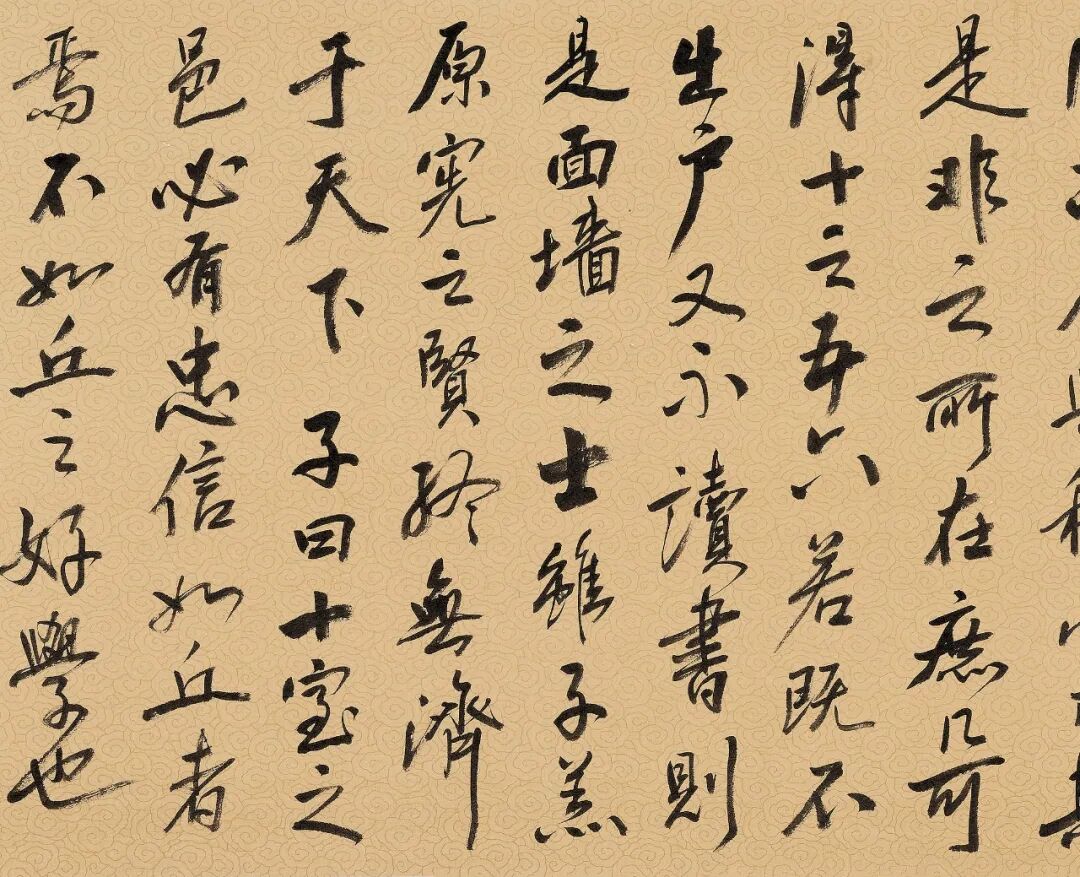 是非之所在庶几可
得十之五六若既不
出户又不讀書則
是面墙之士雖子羔
原宪之賢終無濟
于天下 子曰十室之
邑必有忠信如丘者
焉不如丘之好學也